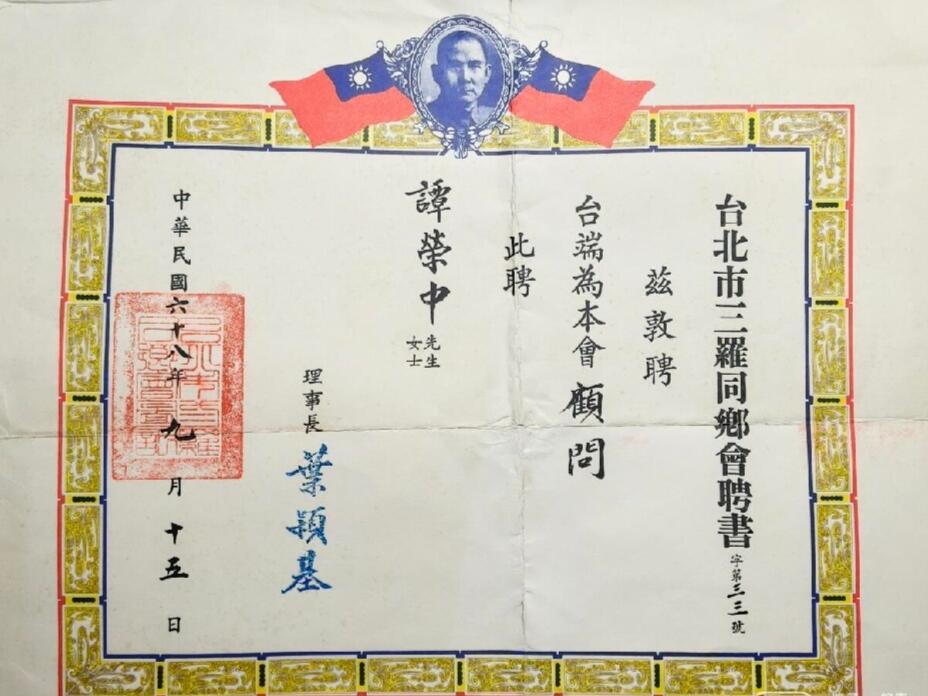 台北市三羅同鄉會聘書 字第三三號
茲敦聘
台端為本會顧問
此聘
譚榮中 先生
女士
理事長 葉穎基
中華民國六十八年九月十五日